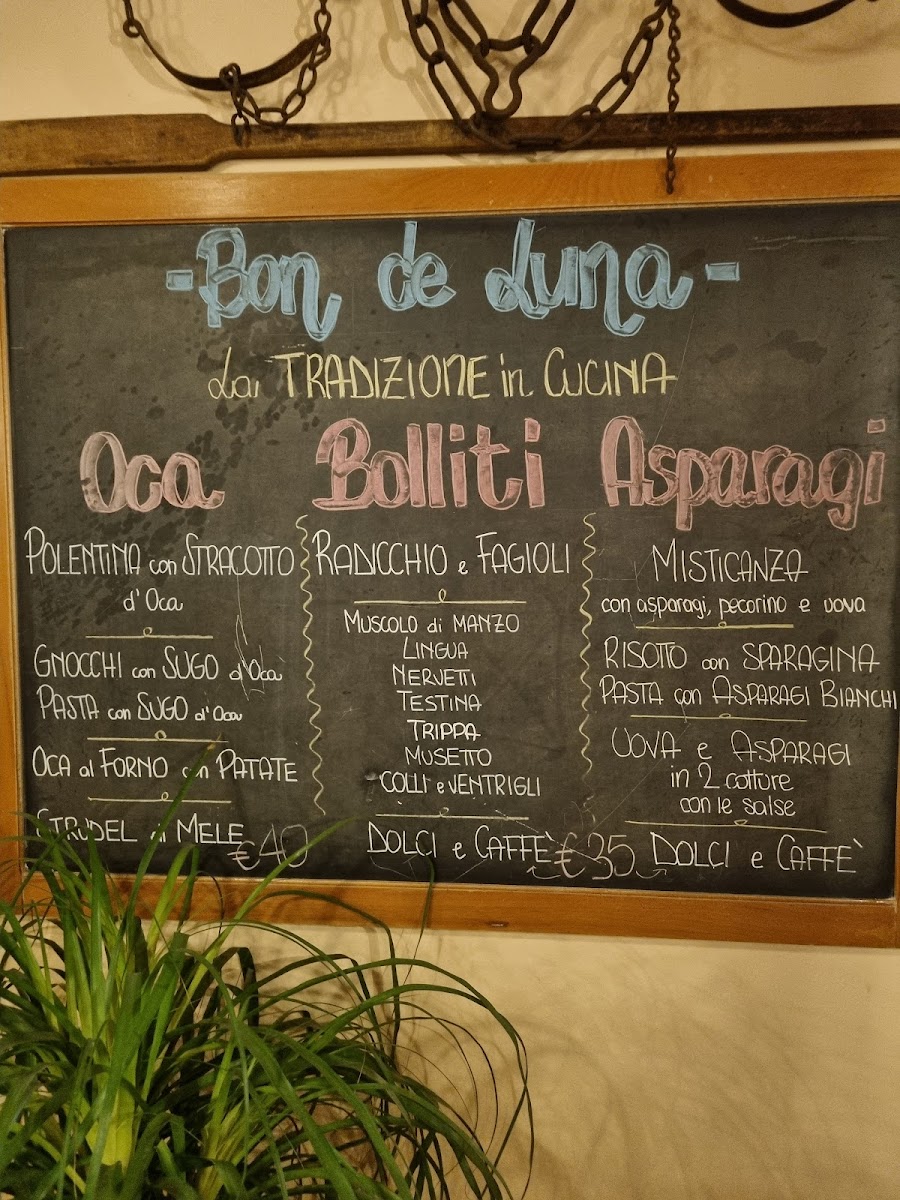 - Bon de Luna -
La TRADIZIONE in CUCINA
Oca
POLENTINA con STRACOTTO
d'Oca
GNOCCHI con SUGO d'Oca
PASTA con SUGO d'Oca
OCA al FORNO con PATATE
STRUDEL di MELE
€40
Bolliti
RADICCHIO e FAGIOLI
MUSCOLO di MANZO
LINGUA
NERVETTI
TESTINA
TRIPPA
MUSETTO
COLLI e VENTRIGLI
DOLCI e CAFFE'
€35
Asparagi
MISTICANZA
con asparagi, pecorino e uova
RISOTTO con SPARAGINA
PASTA con ASPARAGI BIANCHI
UOVA e ASPARAGI
in 2 cotture
con le salse
DOLCI e CAFFE'